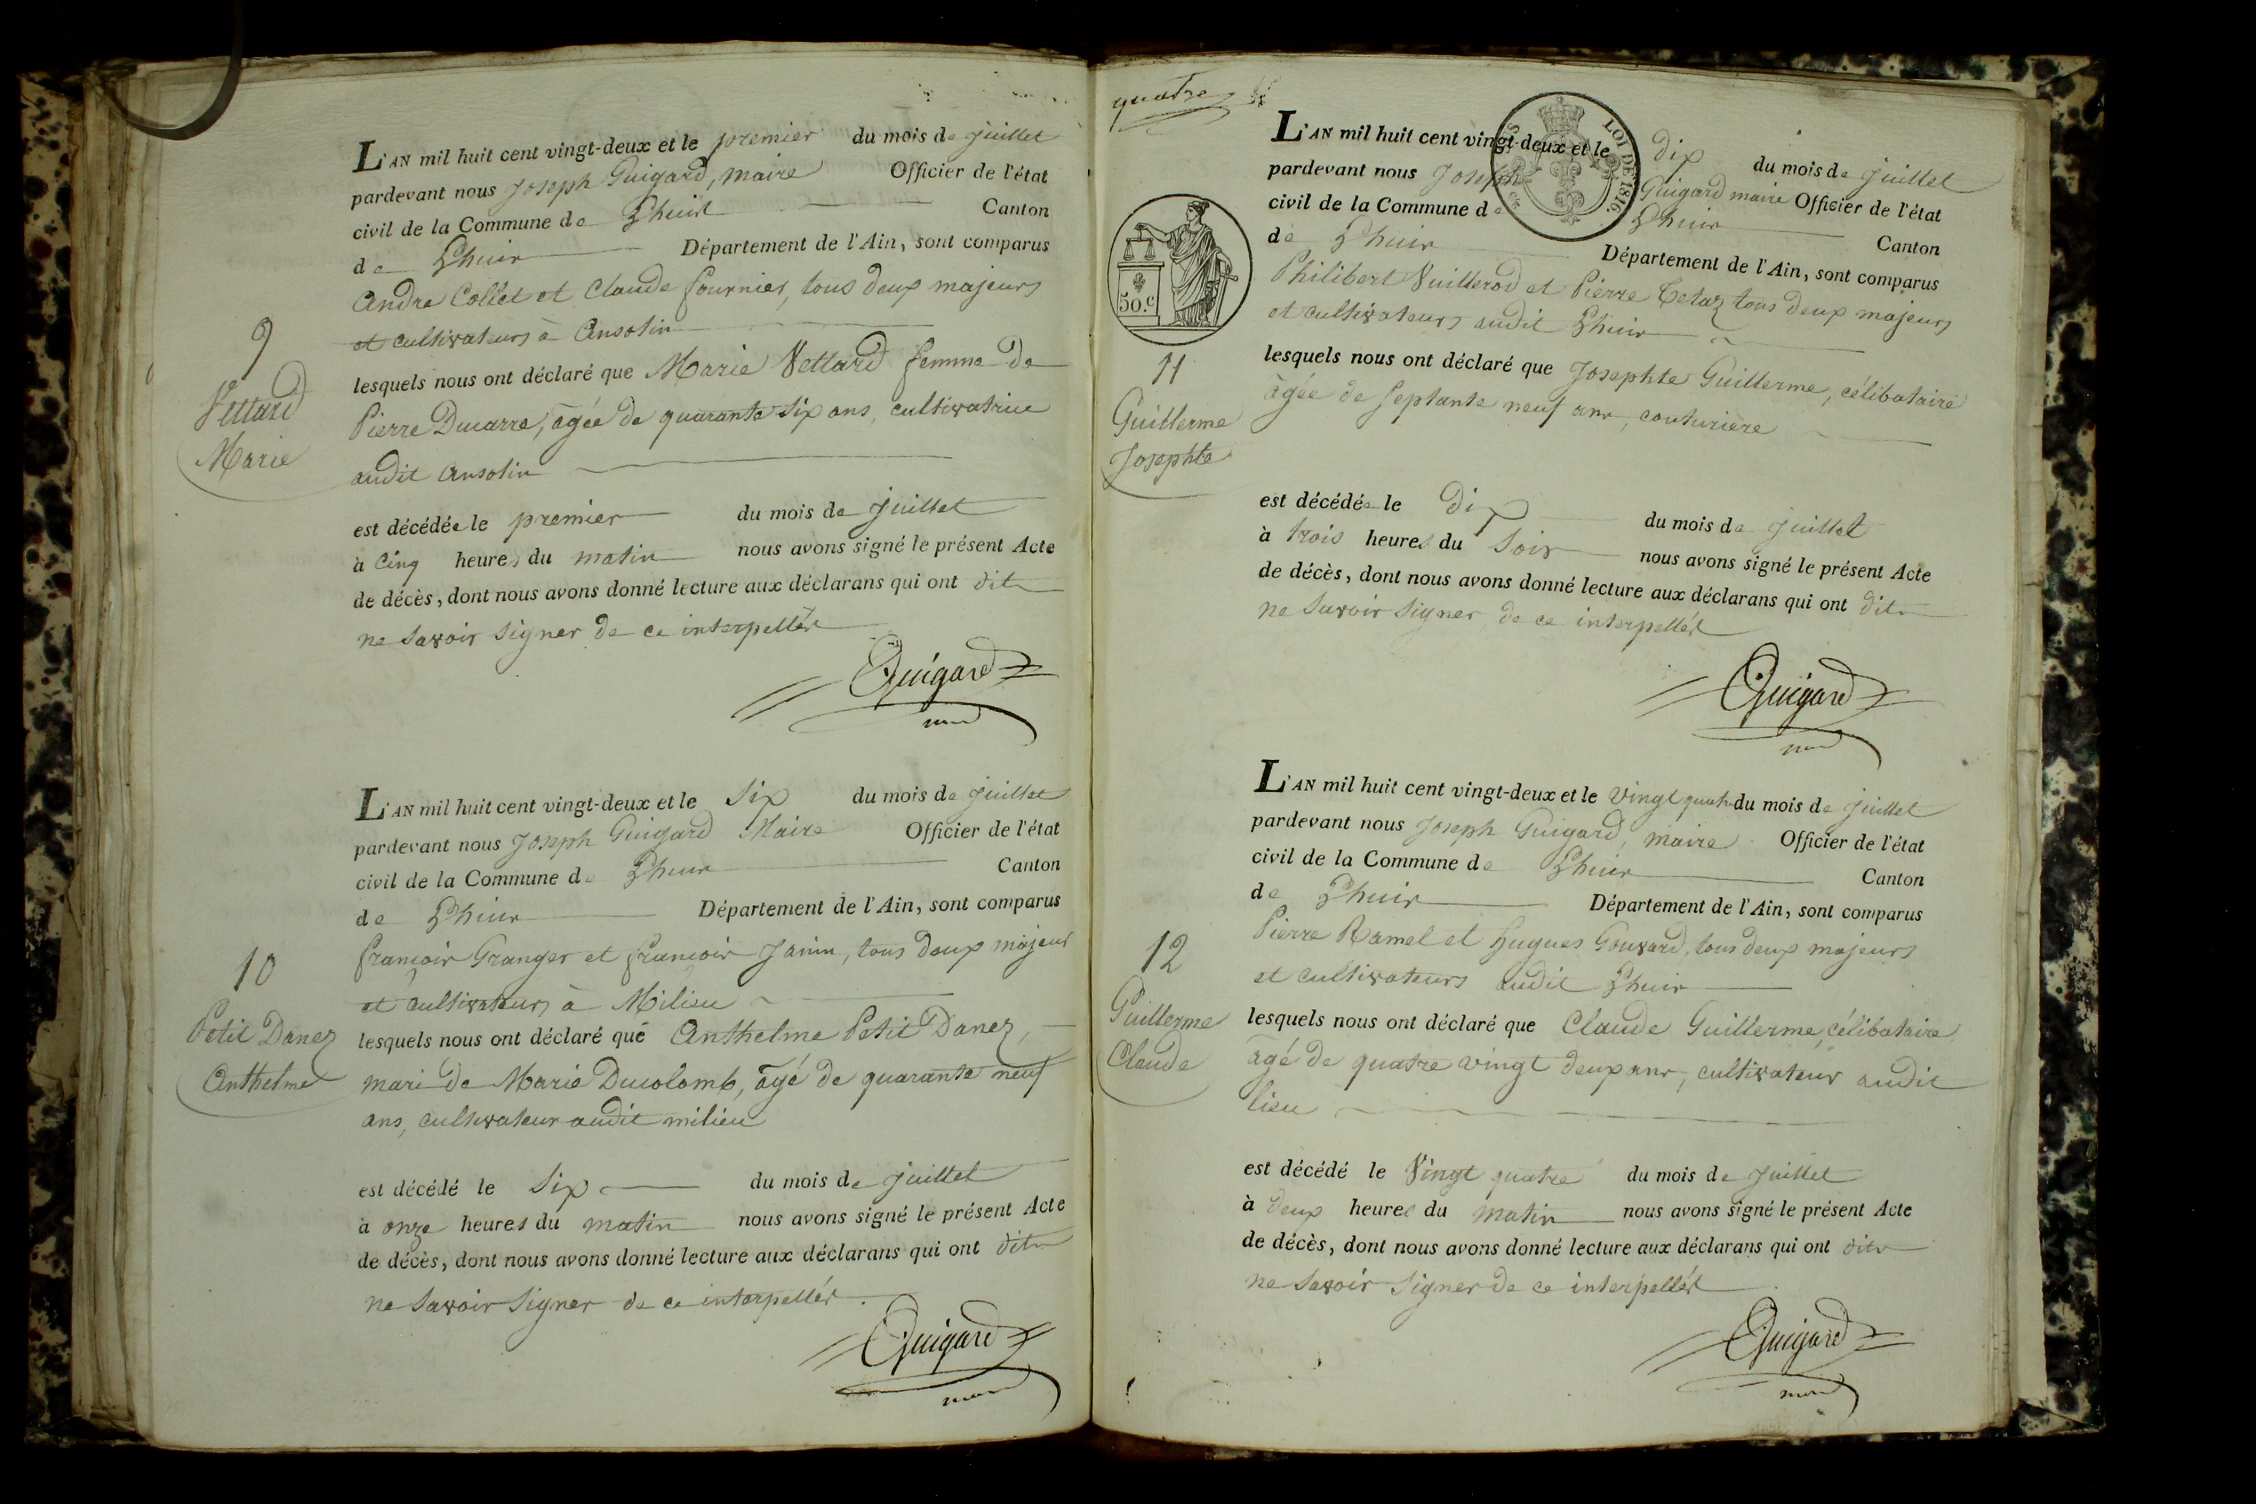 L'AN mil huit cent vingt-deux et le premier du mois de juillet
pardevant nous Joseph Guigard, maire Officier de l'état
civil de la Commune de Lhuis Canton
de Lhuis Département de l'Ain, sont comparus
andre Collet et Claude fournier, tous deux majeurs
et cultivateurs à ansolin
9
Vettard
Marie
lesquels nous ont déclaré que Marie Vettard femme de
Pierre Ducarre, âgée de quarante six ans, cultivatrice
audit ansolin
est décédée le premier du mois de juillet
à Cinq heures du matin nous avons signé le présent Acte
de décès, dont nous avons donné lecture aux déclarans qui ont dit
ne savoir signer de ce interpellés
Guigard
L'AN mil huit cent vingt-deux et le six du mois de juillet
pardevant nous Joseph Guigard Maire Officier de l'état
civil de la Commune de Lhuis Canton
de Lhuis Département de l'Ain, sont comparus
françois Granger et françois Janin, tous deux majeurs
et cultivateurs à Milieu
10
Petit Danez
Anthelme
lesquels nous ont déclaré que Anthelme Petit Danez,
mari de Marie Ducolomb, âgé de quarante neuf
ans, cultivateur audit milieu
est décédé le six du mois de juillet
à onze heures du matin nous avons signé le présent Acte
de décès, dont nous avons donné lecture aux déclarans qui ont dit
ne savoir signer de ce interpellés
Guigard
quatre
LOI DE 1816.
50.c
L'AN mil huit cent vingt-deux et le dix du mois de juillet
pardevant nous Joseph Guigard maire Officier de l'état
civil de la Commune de Lhuis Canton
de Lhuis Département de l'Ain, sont comparus
Philibert Vuillerod et Pierre Tetaz tous deux majeurs
et cultivateurs audit Lhuis
11
Guillerme
Josephte
lesquels nous ont déclaré que Josephte Guillerme, célibataire
âgée de septante neuf ans, couturière
est décédée le dix du mois de juillet
à trois heures du soir nous avons signé le présent Acte
de décès, dont nous avons donné lecture aux déclarans qui ont dit
ne savoir signer de ce interpellés
Guigard
L'AN mil huit cent vingt-deux et le vingt quatre du mois de juillet
pardevant nous Joseph Guigard, maire Officier de l'état
civil de la Commune de Lhuis Canton
de Lhuis Département de l'Ain, sont comparus
Pierre Ramel et hugues Gouvard, tous deux majeurs
et cultivateurs audit Lhuis
12
Guillerme
Claude
lesquels nous ont déclaré que Claude Guillerme, célibataire
âgé de quatre vingt deux ans, cultivateur audit
lieu
est décédé le Vingt quatre du mois de juillet
à deux heures du matin nous avons signé le présent Acte
de décès, dont nous avons donné lecture aux déclarans qui ont dit
ne savoir signer de ce interpellés
Guigard